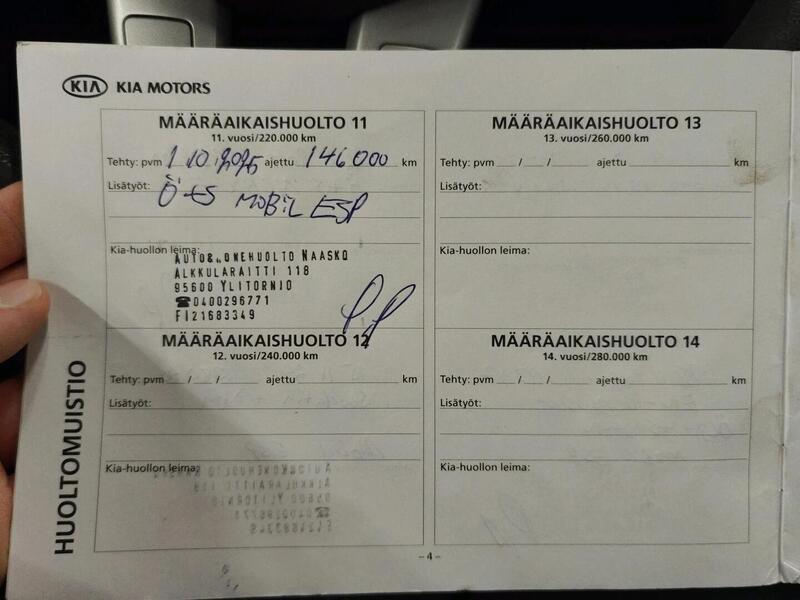 KIA KIA MOTORS
MÄÄRÄAIKAISHUOLTO 11
11. vuosi/220.000 km
Tehty: pvm 1 10 2025 ajettu 146 000 km
Lisätyöt: Ö+S MOBIL ESP
Kia-huollon leima:
AUTO& KONEHUOLTO NAASKO
ALKKULARAITTI 118
95600 YLITORNIO
☎0400296771
FI21683349
MÄÄRÄAIKAISHUOLTO 12
12. vuosi/240.000 km
Tehty: pvm / / ajettu km
Lisätyöt:
Kia-huollon leima:
MÄÄRÄAIKAISHUOLTO 13
13. vuosi/260.000 km
Tehty: pvm / / ajettu km
Lisätyöt:
Kia-huollon leima:
MÄÄRÄAIKAISHUOLTO 14
14. vuosi/280.000 km
Tehty: pvm / / ajettu km
Lisätyöt:
Kia-huollon leima:
HUOLTOMUISTIO
- 4 -